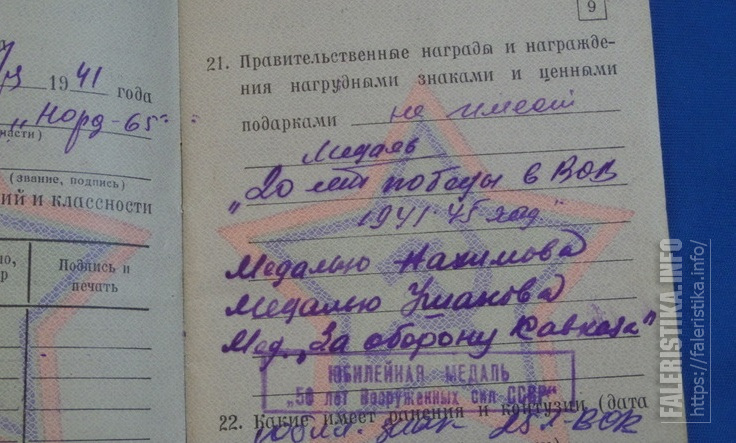 19 41 года
"Норд-65"
части)
(звание, подпись)
ий и классности
Подпись и
печать
9
21. Правительственные награды и награжде-
ния нагрудными знаками и ценными
подарками не имеет
Медаль
"20 лет победы в ВОВ
1941-45 год"
Медалью Нахимова
Медалью Ушакова
Мед. "За оборону Кавказа"
ЮБИЛЕЙНАЯ МЕДАЛЬ
„50 лет Вооруженных сил СССР"
22. Какие имеет ранения и контузии (дата
юбил. знак 25 л. ВОВ
FALERISTIKA.INFO
https://faleristika.info/